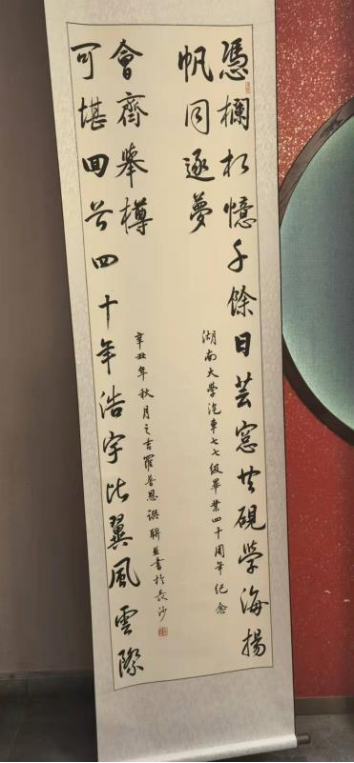 憑欄相憶千餘日芸窓共硯學海揚
帆同逐夢
湖南大學汽車七七級畢業四十周年紀念
可堪回首四十年浩宇比翼風雲際
會齊舉樽
辛丑年秋月之吉羅恩撰聯並書於長沙